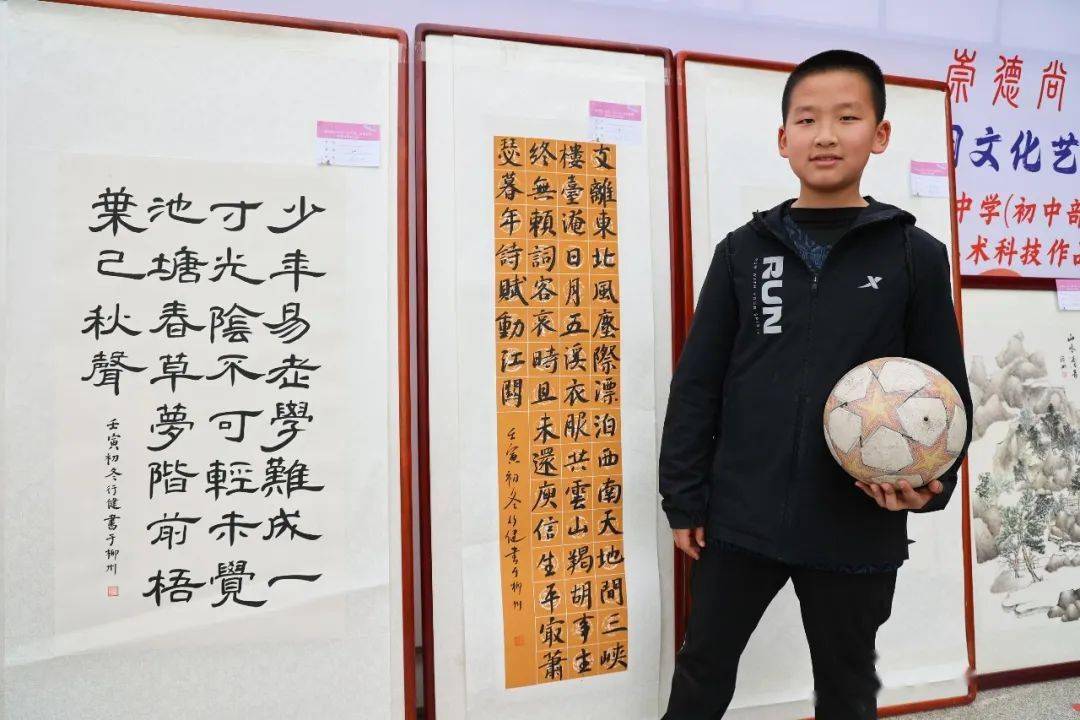 少年易老學難成一
寸光陰不可輕未覺
池塘春草夢階前梧
葉已秋聲
壬寅初冬行健書于柳州
支離東北風塵際漂泊西南天地間三峽
樓臺淹日月五溪衣服共雲山羯胡事主
終無賴詞客哀時且未還庾信生平㝡蕭
瑟暮年詩賦動江關
壬寅初冬行健書于柳州
RUN
崇德尚
文化艺
中学(初中部
术科技作品